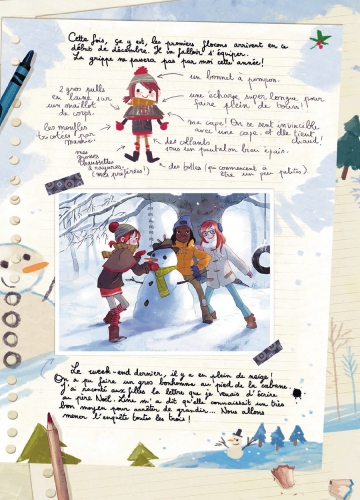 Cette fois, ça y est, les premiers flocons arrivent en ce
début de décembre. Il va falloir s'équiper.
La grippe ne passera pas par moi cette année!
un bonnet à pompon.
2 gros pulls
en laine sur
un maillot
de corps.
une écharpe super longue pour
faire plein de tours!!
ma cape! On se sent invincible
avec une cape, et elle tient
chaud!
les moufles
tricotées par
mamie.
des collants
sous un pantalon bien épais.
mes
grosses
chaussettes
à rayures
(mes préférées!)
des bottes (qui commencent à
être un peu petites).
Le week-end dernier, il y a eu plein de neige!
On a pu faire un gros bonhomme au pied de la cabane.
J'ai raconté aux filles la lettre que je venais d'écrire
au père Noël. Line m'a dit qu'elle connaissait un très
bon moyen pour arrêter de grandir... Nous allons
mener l'enquête toutes les trois!